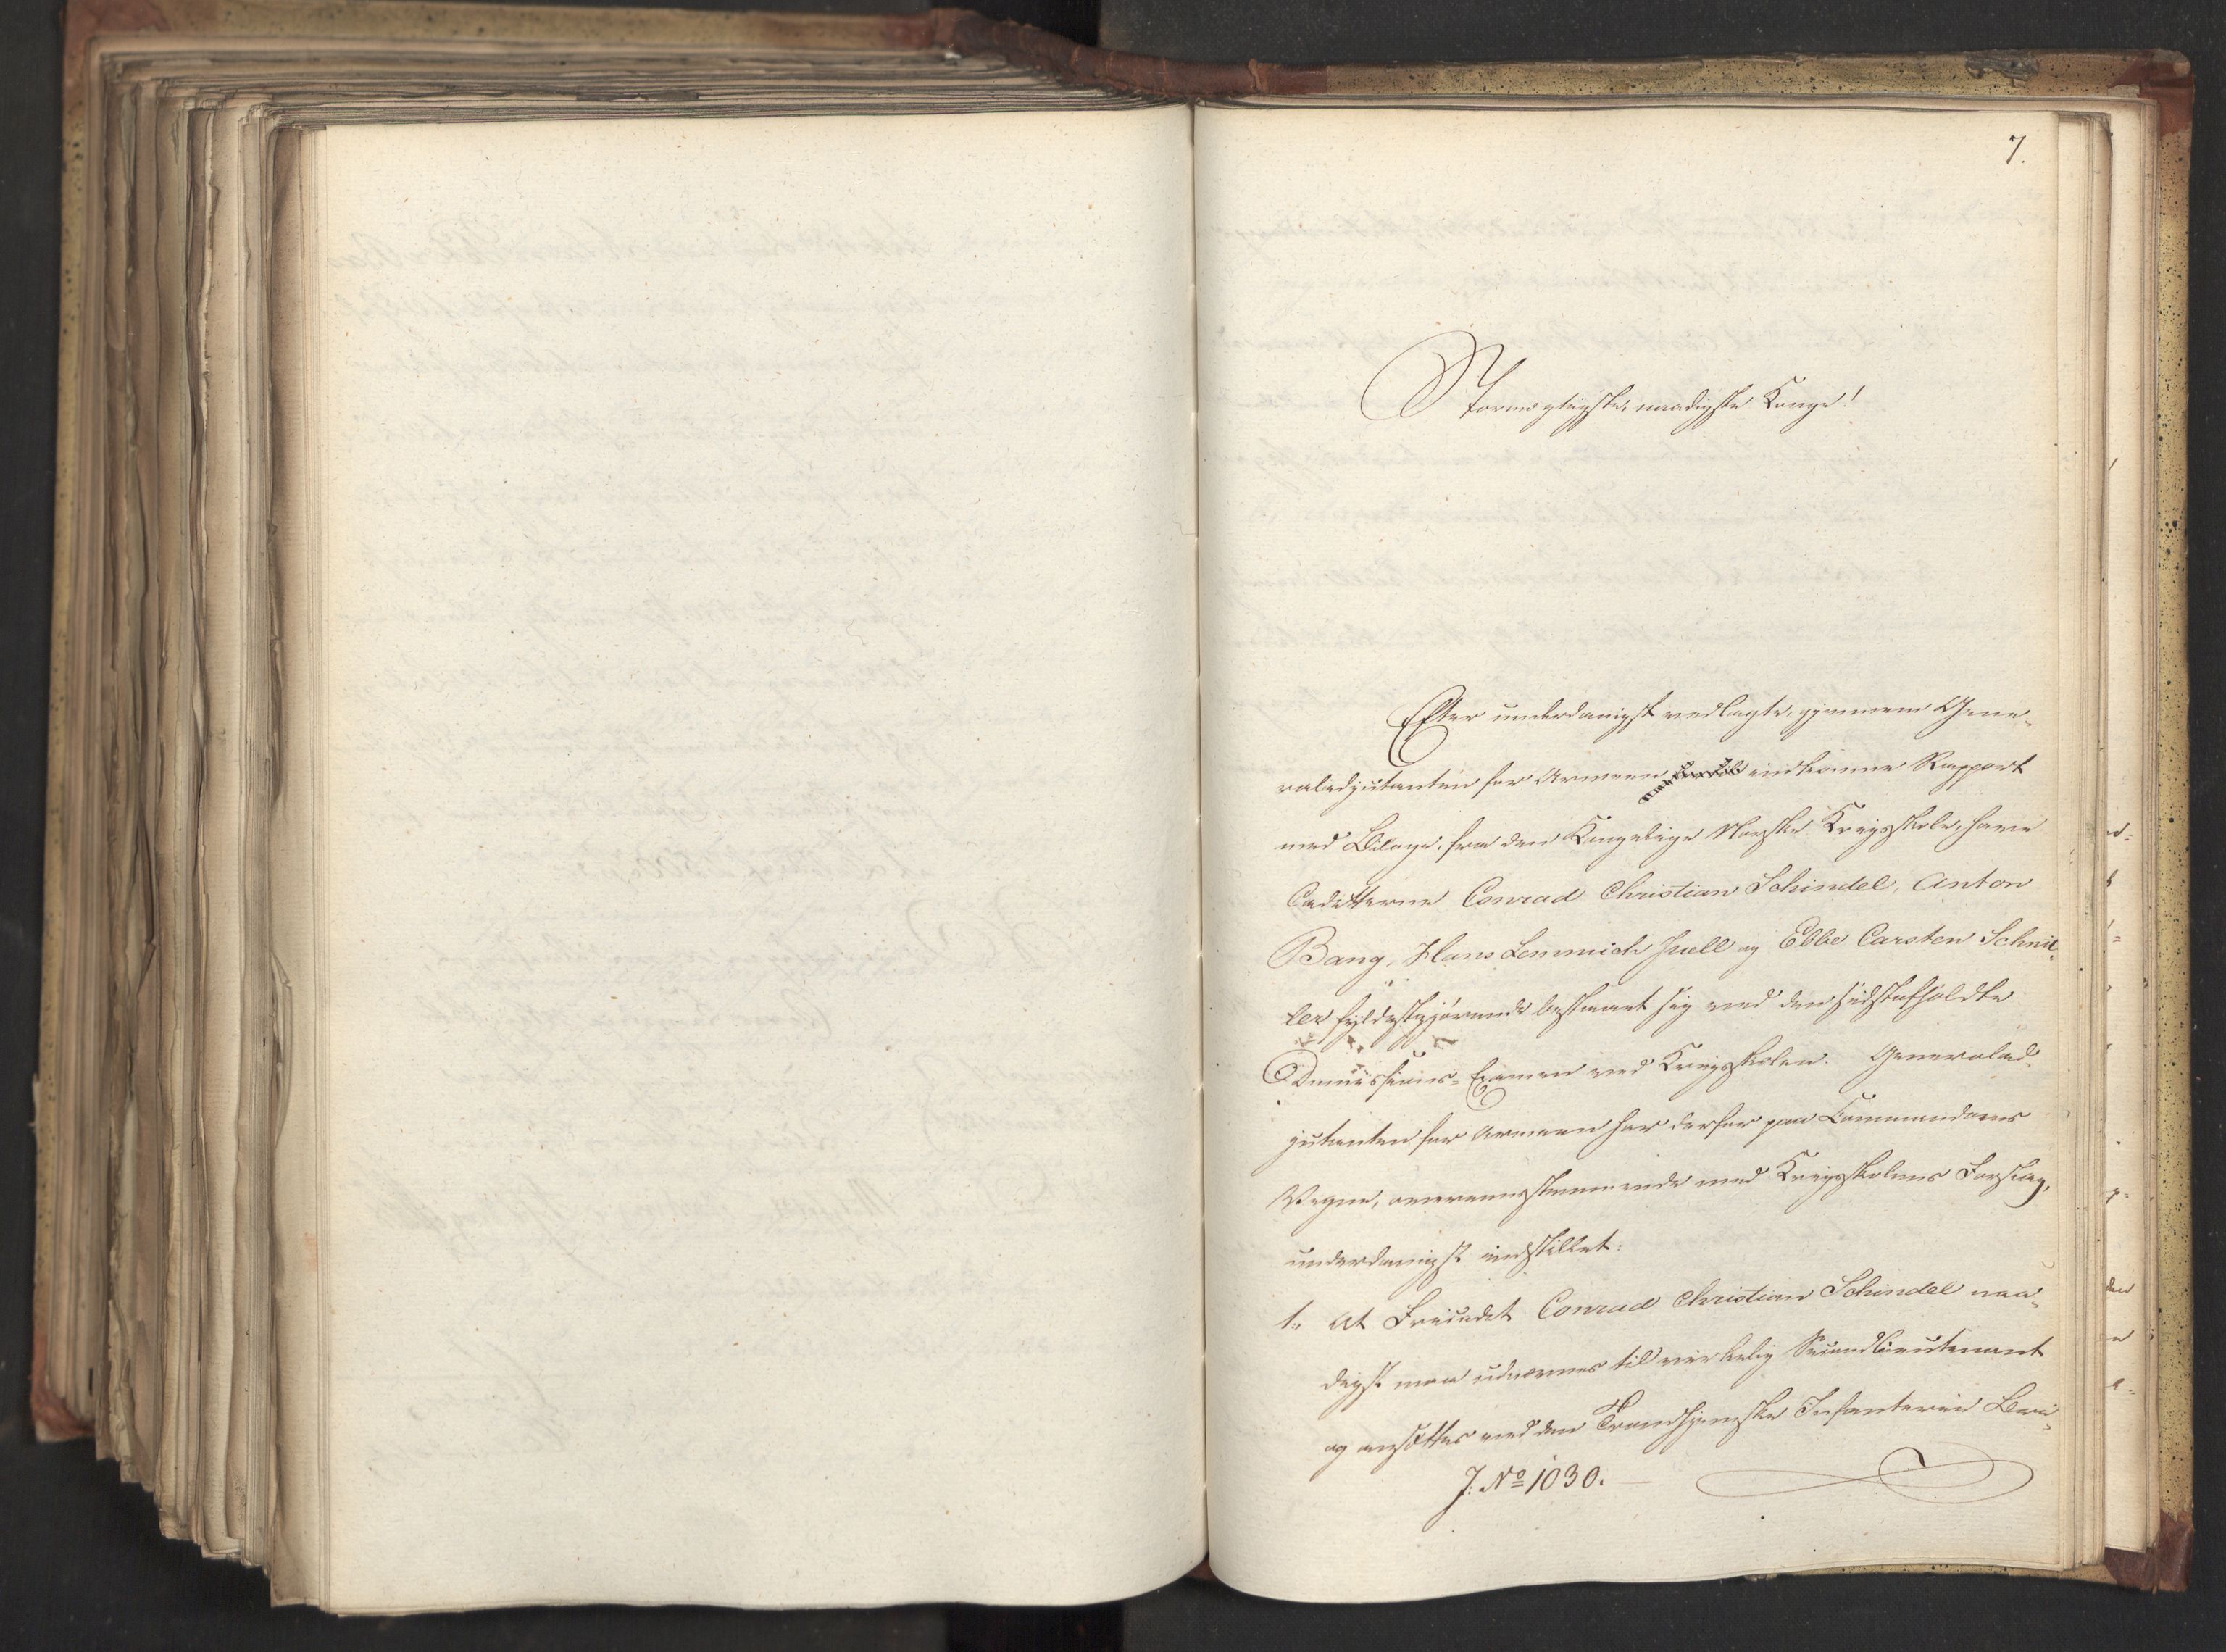 7.
Stormægtigste, naadigste Konge!
Efter underdanigst vedlagte, gjennem Gene-
raladjutanten for Armeen indkomne Rapport
med Bilage, fra den Kongelige Norske Krigsskole, have
Cadetterne Conrad Christian Schindel, Anton
Bang, Hans Lemmich Juell og Ebbe Carsten Schnit-
ler fyldestgjørende bestaaet sig ved den sidstafholdte
Dimissions-Examen ved Krigsskolen. Generalad-
jutanten for Armeen har derfor paa Commandoens
Vegne, overeensstemmende med Krigsskolens Forslag,
underdanigst indstillet:
1, at Conrad Christian Schindel naa-
digst maa udnævnes til virkelig Secondlieutenant
og ansættes ved den Trondhjemske Infanterie Bri-
J. No 1030.